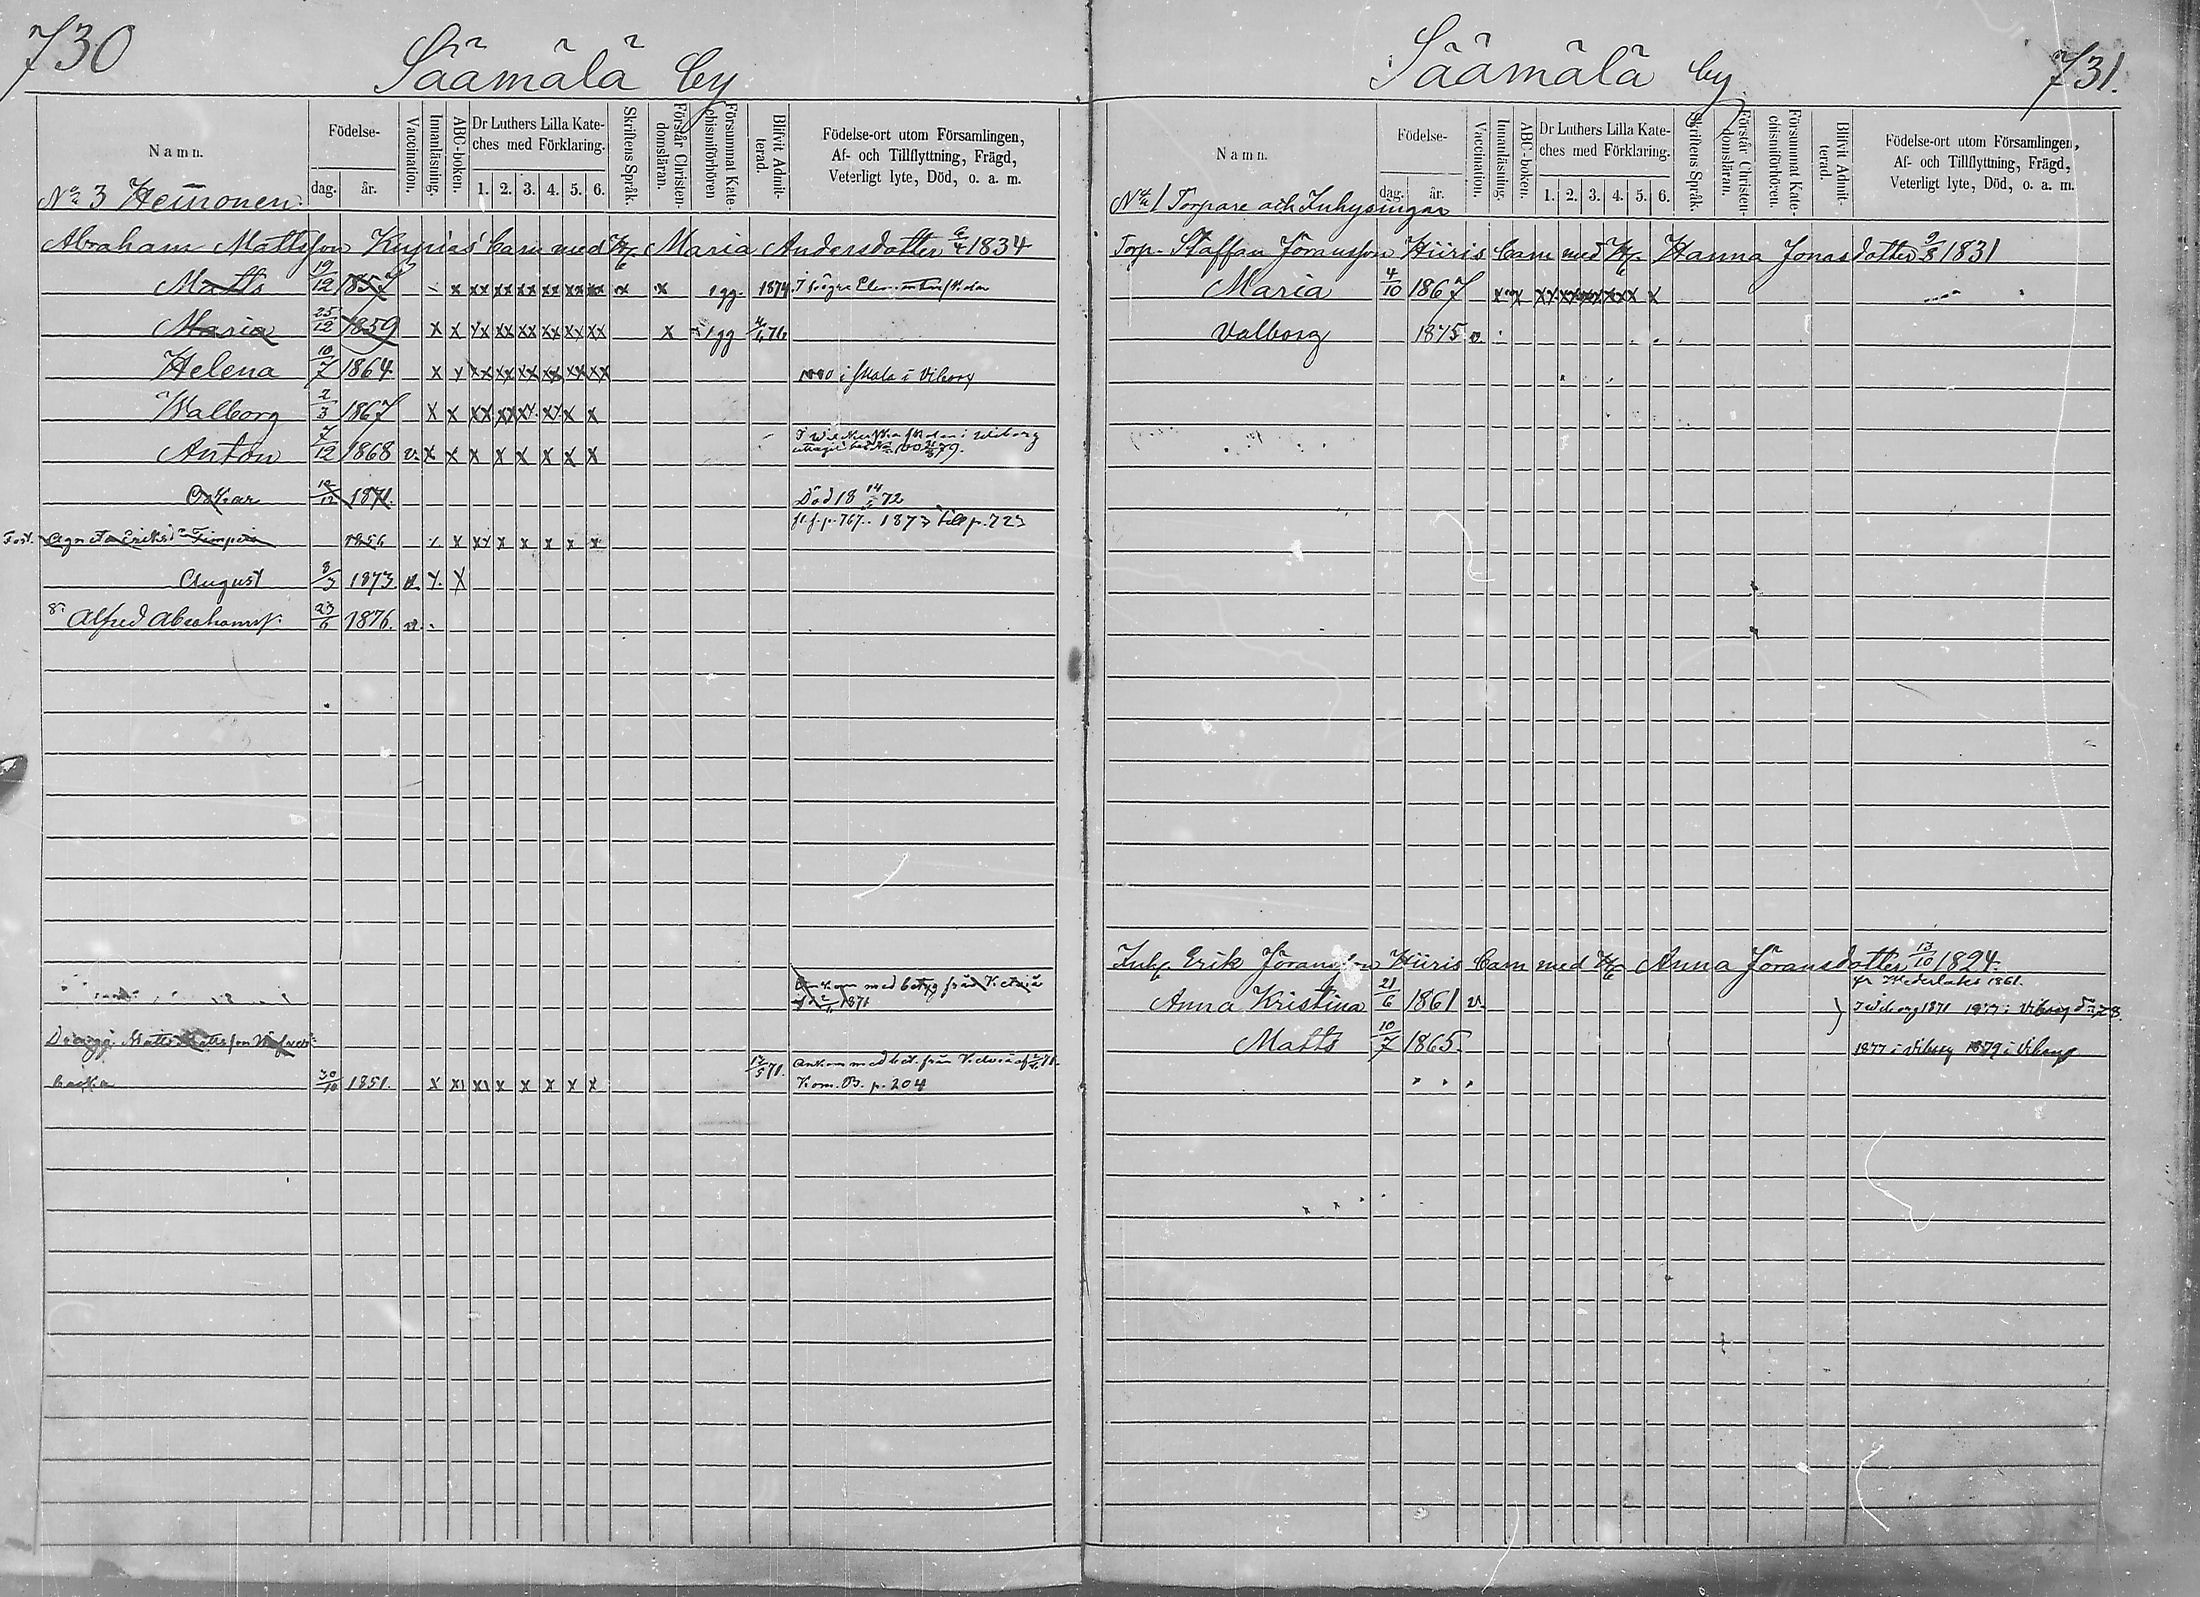 730
Säämälä by
Namn.
Födelse-
dag.
år.
Vaccination.
Innanläsning.
ABC-boken.
Dr Luthers Lilla Kate-
ches med Förklaring.
1. 2. 3. 4. 5. 6.
Skriftens Språk.
Förstår Christen-
domsläran.
Försummat Kate-
chismiförhören
Blifvit Admit-
terad.
Födelse-ort utom Församlingen,
Af- och Tillflyttning, Frägd,
Veterligt lyte, Död, o. a. m.
No 3 Heinonen
Abraham Mattsson Kupias barn med H. Maria Andersdotter 6/4 1834
Matts 19/12 1857 x xx xx xx xx xx xx x x 1 gg. 1874. I högre
Maria 25/12 1859 x x xx xx xx xx xx xx x 1 gg 76
Helena 10/7 1864 x x xx xx xx xx xx xx i skola i Viborg
Walborg 2/3 1867 x x xx xx xx xx x x
Anton 7/12 1868 v. x x x x x x x x
Oskar 1871. Död 18 14/ 72
fl. f. p. 767. 1873 till p. 723
Agneta Eriksd 1856 x x xx x x x x x
August 8/3 1873. v. x. x
Alfred Abrahamss. 23/6 1876. v.
Ankom med betyg från
1871
Dräng Matts Mattsson
30/10 1851. x x x x x x x x 71. Ankom med bet. från
Kom. B. p. 204
Säämälä by
731.
Namn.
Födelse-
dag.
år.
Vaccination.
Innanläsning.
ABC-boken.
Dr Luthers Lilla Kate-
ches med Förklaring.
1. 2. 3. 4. 5. 6.
Skriftens Språk.
Förstår Christen-
domsläran.
Försummat Kate-
chismiförhören.
Blifvit Admit-
terad.
Födelse-ort utom Församlingen,
Af- och Tillflyttning, Frägd,
Veterligt lyte, Död, o. a. m.
No 1 Torpare och Inhysingar
Torp. Staffan Jöransson Hiiris barn med H. Hanna Jonasdotter 9/8 1831
Maria 4/10 1867
Valborg 1875 v.
Inh. Erik Jöransson Hiiris barn med H. Anna Jöransdotter 13/10 1824.
fr Wederlaks 1861.
Anna Kristina 21/6 1861 v. 1871 1877 i Viborg
Matts 10/7 1865. 1877 i Viborg 1879 i Viborg